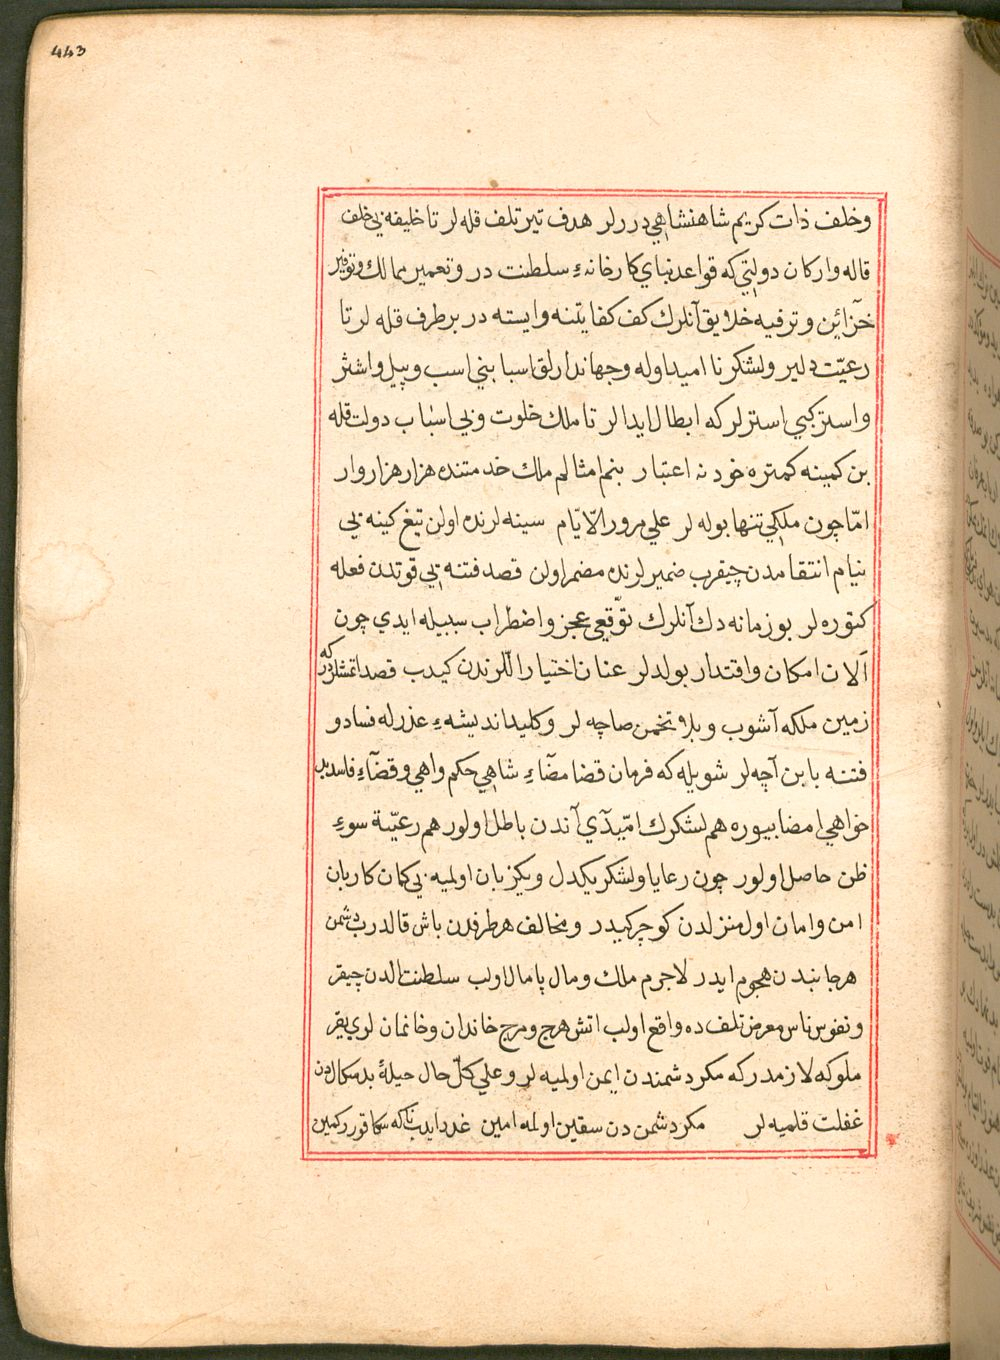 443
وخلف ذات كريم شاهنشاهي درلر هدف تير تلف قله لر تا خليفه بي خلف
قاله واركان دولتي كه قواعد بناي كارخانهء سلطنت در وتعمير ممالك وتوفير
خزائن وترفيه خلايق آنلرك كف كفايتنه وابسته در برطرف قله لر تا
رعيّت دلير ولشكر نا اميد اوله وجهاندارلق اسبابني اسب وپيل واشتر
واستر كبي استرلر كه ابطال ايدالر تا ملك خلوت وبي اسباب دولت قله
بن كمينه كمتره خود نه اعتبار بنم امثالم ملك خدمتنده هزار هزار وار
امّا چون ملكي تنها بوله لر علي مرور الايّام سينه لرنده اولن تيغ كينه بي
نيام انتقامدن چيقرب ضميرلرنده مضمر اولن قصد فتنه يي قوتدن فعله
كتوره لر بو زمانه دك آنلرك توقّعي عجز واضطراب سببيله ايدي چون
الآن امكان واقتدار بولدلر عنان اختيار اللرندن كيدب قصد اتمشلردر كه
زمين ملكه آشوب وبلا تخمن صاچه لر وكليد انديشهء عذرله فساد و
فتنه بابن آچه لر شويله كه فرمان قضا مضاء شاهي حكم واهي وقضاء فاسد
خواهي امضا بيوره هم لشكرك امّيدي آندن باطل اولور هم رعيّة سوء
ظن حاصل اولور چون رعايا ولشكر يكدل ويكزبان اولميه بي كمان كاربان
امن وامان اول منزلدن كوچر كيدر ومخالف هر طرفدن باش قالدرب دشمن
هر جانبدن هجوم ايدر لاجرم ملك ومال پامال اولب سلطنت الدن چيقر
ونفوس ناس معرض تلف ده واقع اولب اتش هرج ومرج خاندان وخانمان لري يقر
ملوكه لازمدر كه مكر دشمندن ايمن اولميه لر وعلي كلّ حال حيلهٔ بدسكالدن
غفلت قلميه لر مكر دشمن دن سقين اولمه امين غدر ايدب ناكه سكا قورر كمين